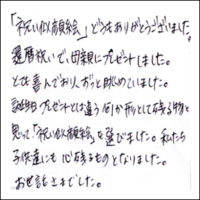 「祝い似顔絵」どうもありがとうございました。
還暦祝いで、母親にプレゼントしました。
とても喜んでおり、ずっと眺めていました。
誕生日プレゼントとは違う何か形として残る物と
思って「祝い似顔絵」を選びました。私たち
子供達にも心残るものとなりました。
お世話さまでした。